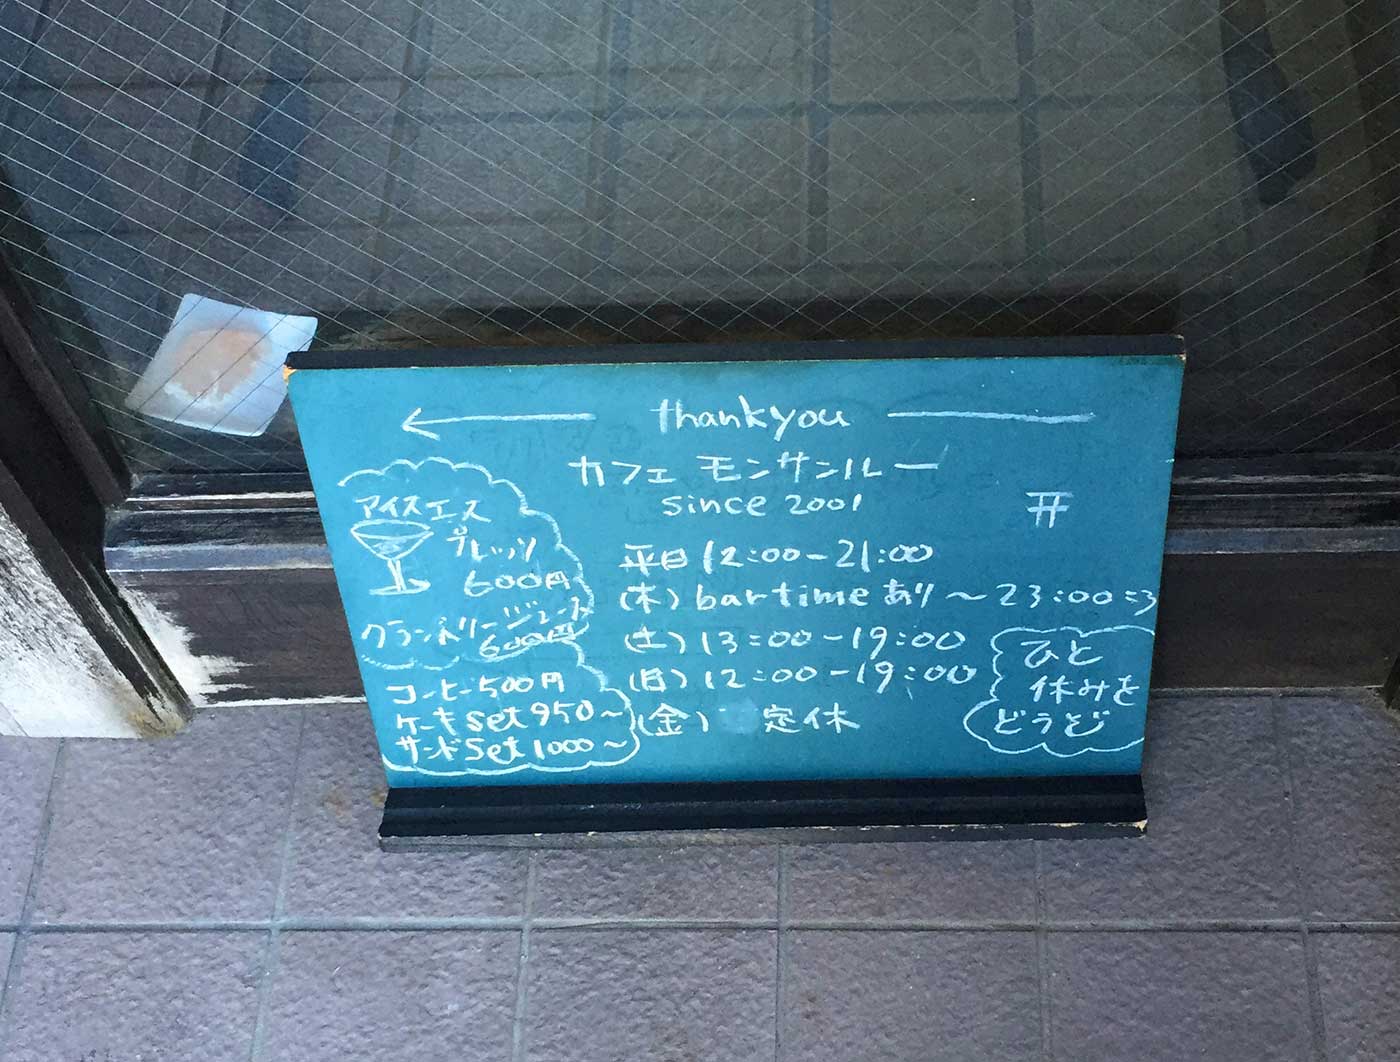 thankyou
カフェ モンサンルー
since 2001
アイスエス
プレッソ
600円
クランベリージュース
600円
コーヒー500円
ケーキset950〜
サンドSet1000〜
平日12:00-21:00
(木)bartimeあり〜23:00
(土)13:00-19:00
(日)12:00-19:00
(金) 定休
ひと
休みを
どうぞ